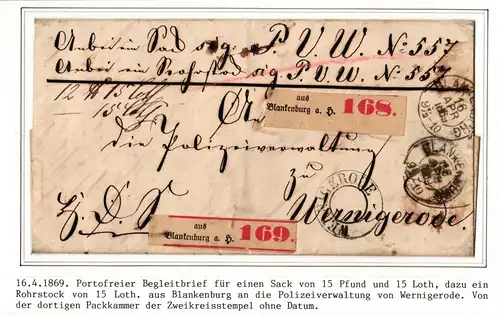 Anbei ein Sack sig. P. V. W. No 557
Anbei ein Rohrstock sig. P. V. W. No 557
12 ℔ 15 Loth
15 Loth
An
aus
Blankenburg a. H. 168.
die Polizeiverwaltung
zu
H. D. S.
Wernigerode.
aus
Blankenburg a. H. 169.
BLANKENBURG
16
APR
BLANKENBURG
16
WERNIGERODE
16.4.1869. Portofreier Begleitbrief für einen Sack von 15 Pfund und 15 Loth, dazu ein
Rohrstock von 15 Loth. aus Blankenburg an die Polizeiverwaltung von Wernigerode. Von
der dortigen Packkammer der Zweikreisstempel ohne Datum.